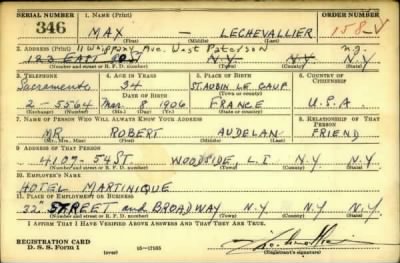 SERIAL NUMBER 1. NAME (Print) ORDER NUMBER
346 MAX — LECHEVALLIER 158-V
(First) (Middle) (Last)
2. ADDRESS (Print) 11 Whippany Ave. West Paterson N.J.
123 EAST N.Y. N.Y. N.Y.
(Number and street or R. F. D. number) (Town) (County) (State)
3. TELEPHONE 4. AGE IN YEARS 5. PLACE OF BIRTH 6. COUNTRY OF CITIZENSHIP
Sacramento 34 ST. AUBIN LE CAUF
DATE OF BIRTH (Town or county)
2-5564 Mar. 8 1906 FRANCE U.S.A.
(Exchange) (Number) (Mo.) (Day) (Yr.) (State or country)
7. NAME OF PERSON WHO WILL ALWAYS KNOW YOUR ADDRESS 8. RELATIONSHIP OF THAT PERSON
MR. ROBERT AUDELAN FRIEND
(Mr., Mrs., Miss) (First) (Middle) (Last)
9. ADDRESS OF THAT PERSON
4107-54 ST. WOODSIDE, L.I. N.Y. N.Y.
(Number and street or R. F. D. number) (Town) (County) (State)
10. EMPLOYER'S NAME
HOTEL MARTINIQUE
11. PLACE OF EMPLOYMENT OR BUSINESS
32 STREET and BROADWAY N.Y. N.Y. N.Y.
(Number and street or R. F. D. number) (Town) (County) (State)
I AFFIRM THAT I HAVE VERIFIED ABOVE ANSWERS AND THAT THEY ARE TRUE.
REGISTRATION CARD
D. S. S. Form 1 (over) 16-17105 (Registrant's signature)